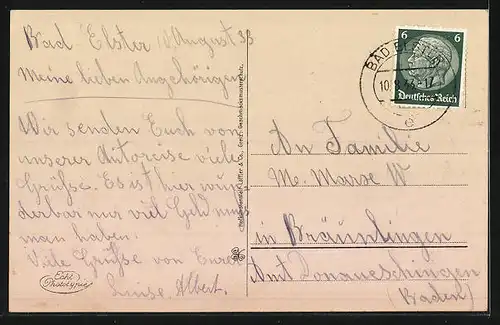 Bad Elster 10. August 33
Meine lieben Angehörigen
Wir senden Euch von
unserer Autoreise viele
Grüsse. Es ist hier wun
derbar nur viel Geld muss
man haben.
Viele Grüsse von Eurer
Luise, Albert.
Echt
Phototypie
6 6
Deutsches Reich
BAD ELSTER
An Familie
M. Marse W
in Bräunlingen
Amt Donaueschingen
(Baden)